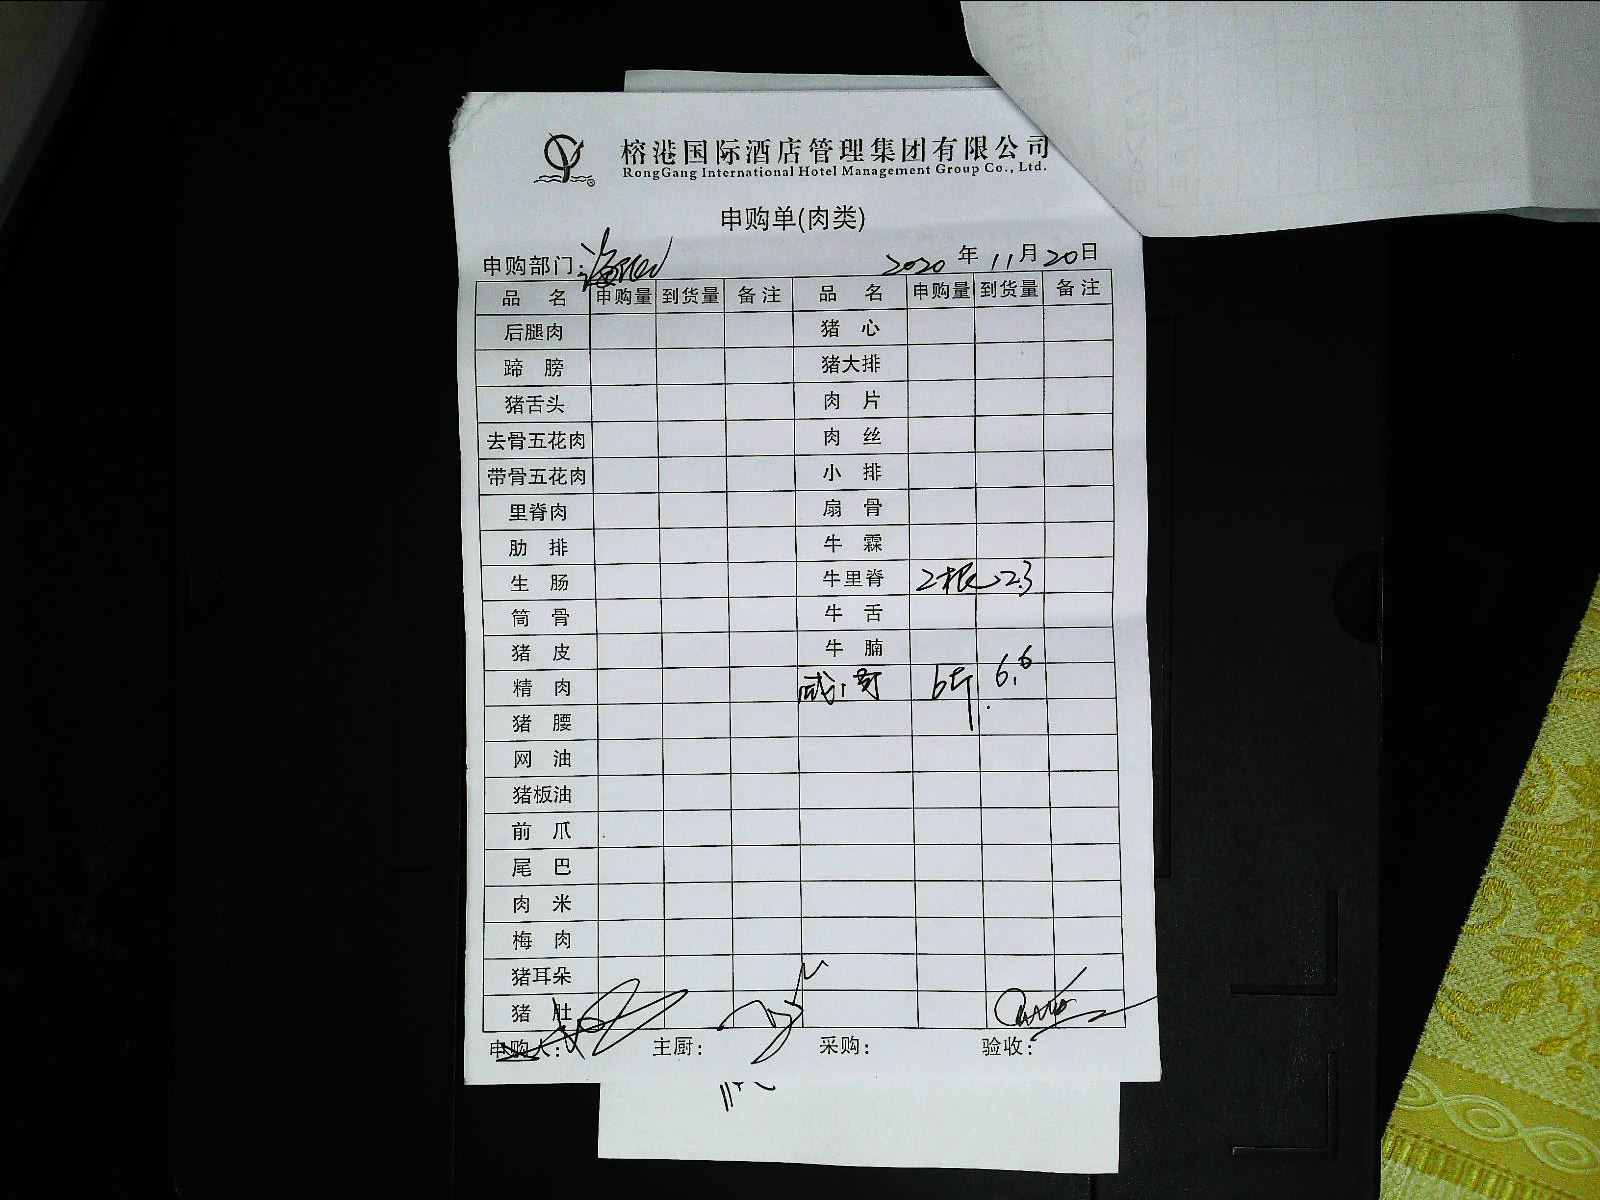 榕港国际酒店管理集团有限公司
RongGang International Hotel Management Group Co., Ltd.
申购单(肉类)
申购部门:
2020 年 11 月 20 日
品 名 申购量 到货量 备注 品 名 申购量 到货量 备注
后腿肉 猪 心
蹄 膀 猪大排
猪舌头 肉 片
去骨五花肉 肉 丝
带骨五花肉 小 排
里脊肉 扇 骨
肋 排 牛 霖
生 肠 牛里脊 2根 23
筒 骨 牛 舌
猪 皮 牛 腩
精 肉 6斤 6.6
猪 腰
网 油
猪板油
前 爪
尾 巴
肉 米
梅 肉
猪耳朵
猪 肚
申购人: 主厨: 采购: 验收: